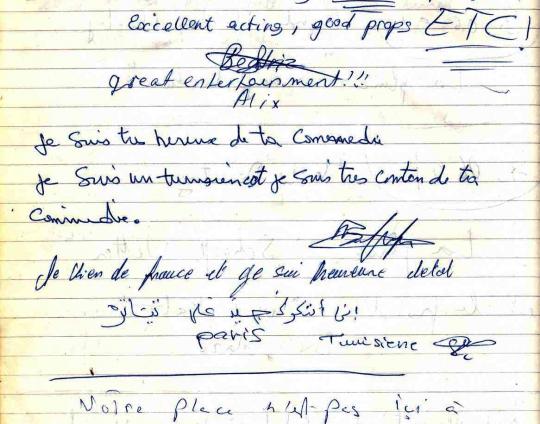 Excellent acting, good props ETC!
great entertainment!!!
Alix
Je Suis tres hereux de ta Comomedie
je Suis un tunisien et je Suis tres conton de ta
Commedie.
Je vien de france et ge sui heureuse
إني أشكرك جيدا على
paris Tunisiene
Notre place n'est pas ici à